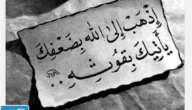 إذهب إلى الله بضعفك
يأتيك بقوته ..